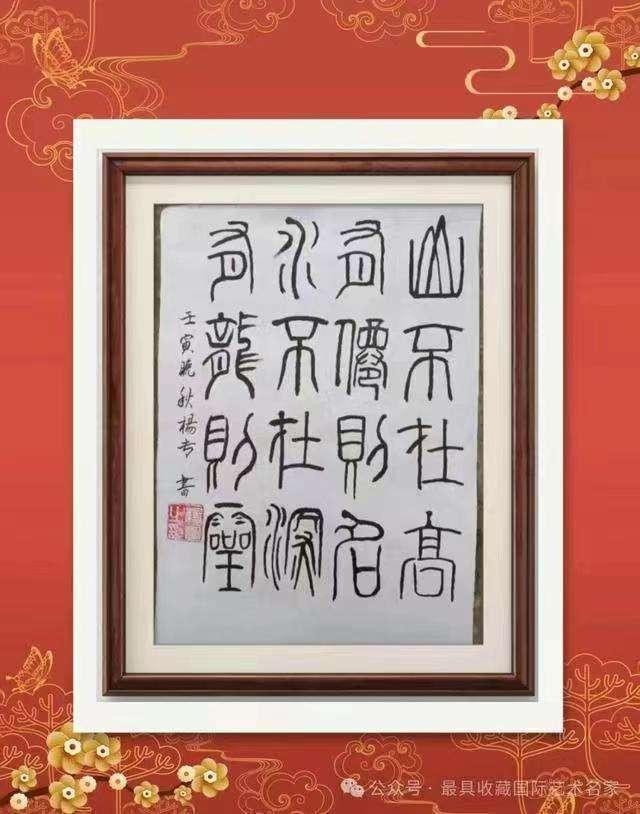 山不在高
有僊則名
水不在深
有龍則靈
壬寅晚秋楊 書
公众号 · 最具收藏国际艺术名家